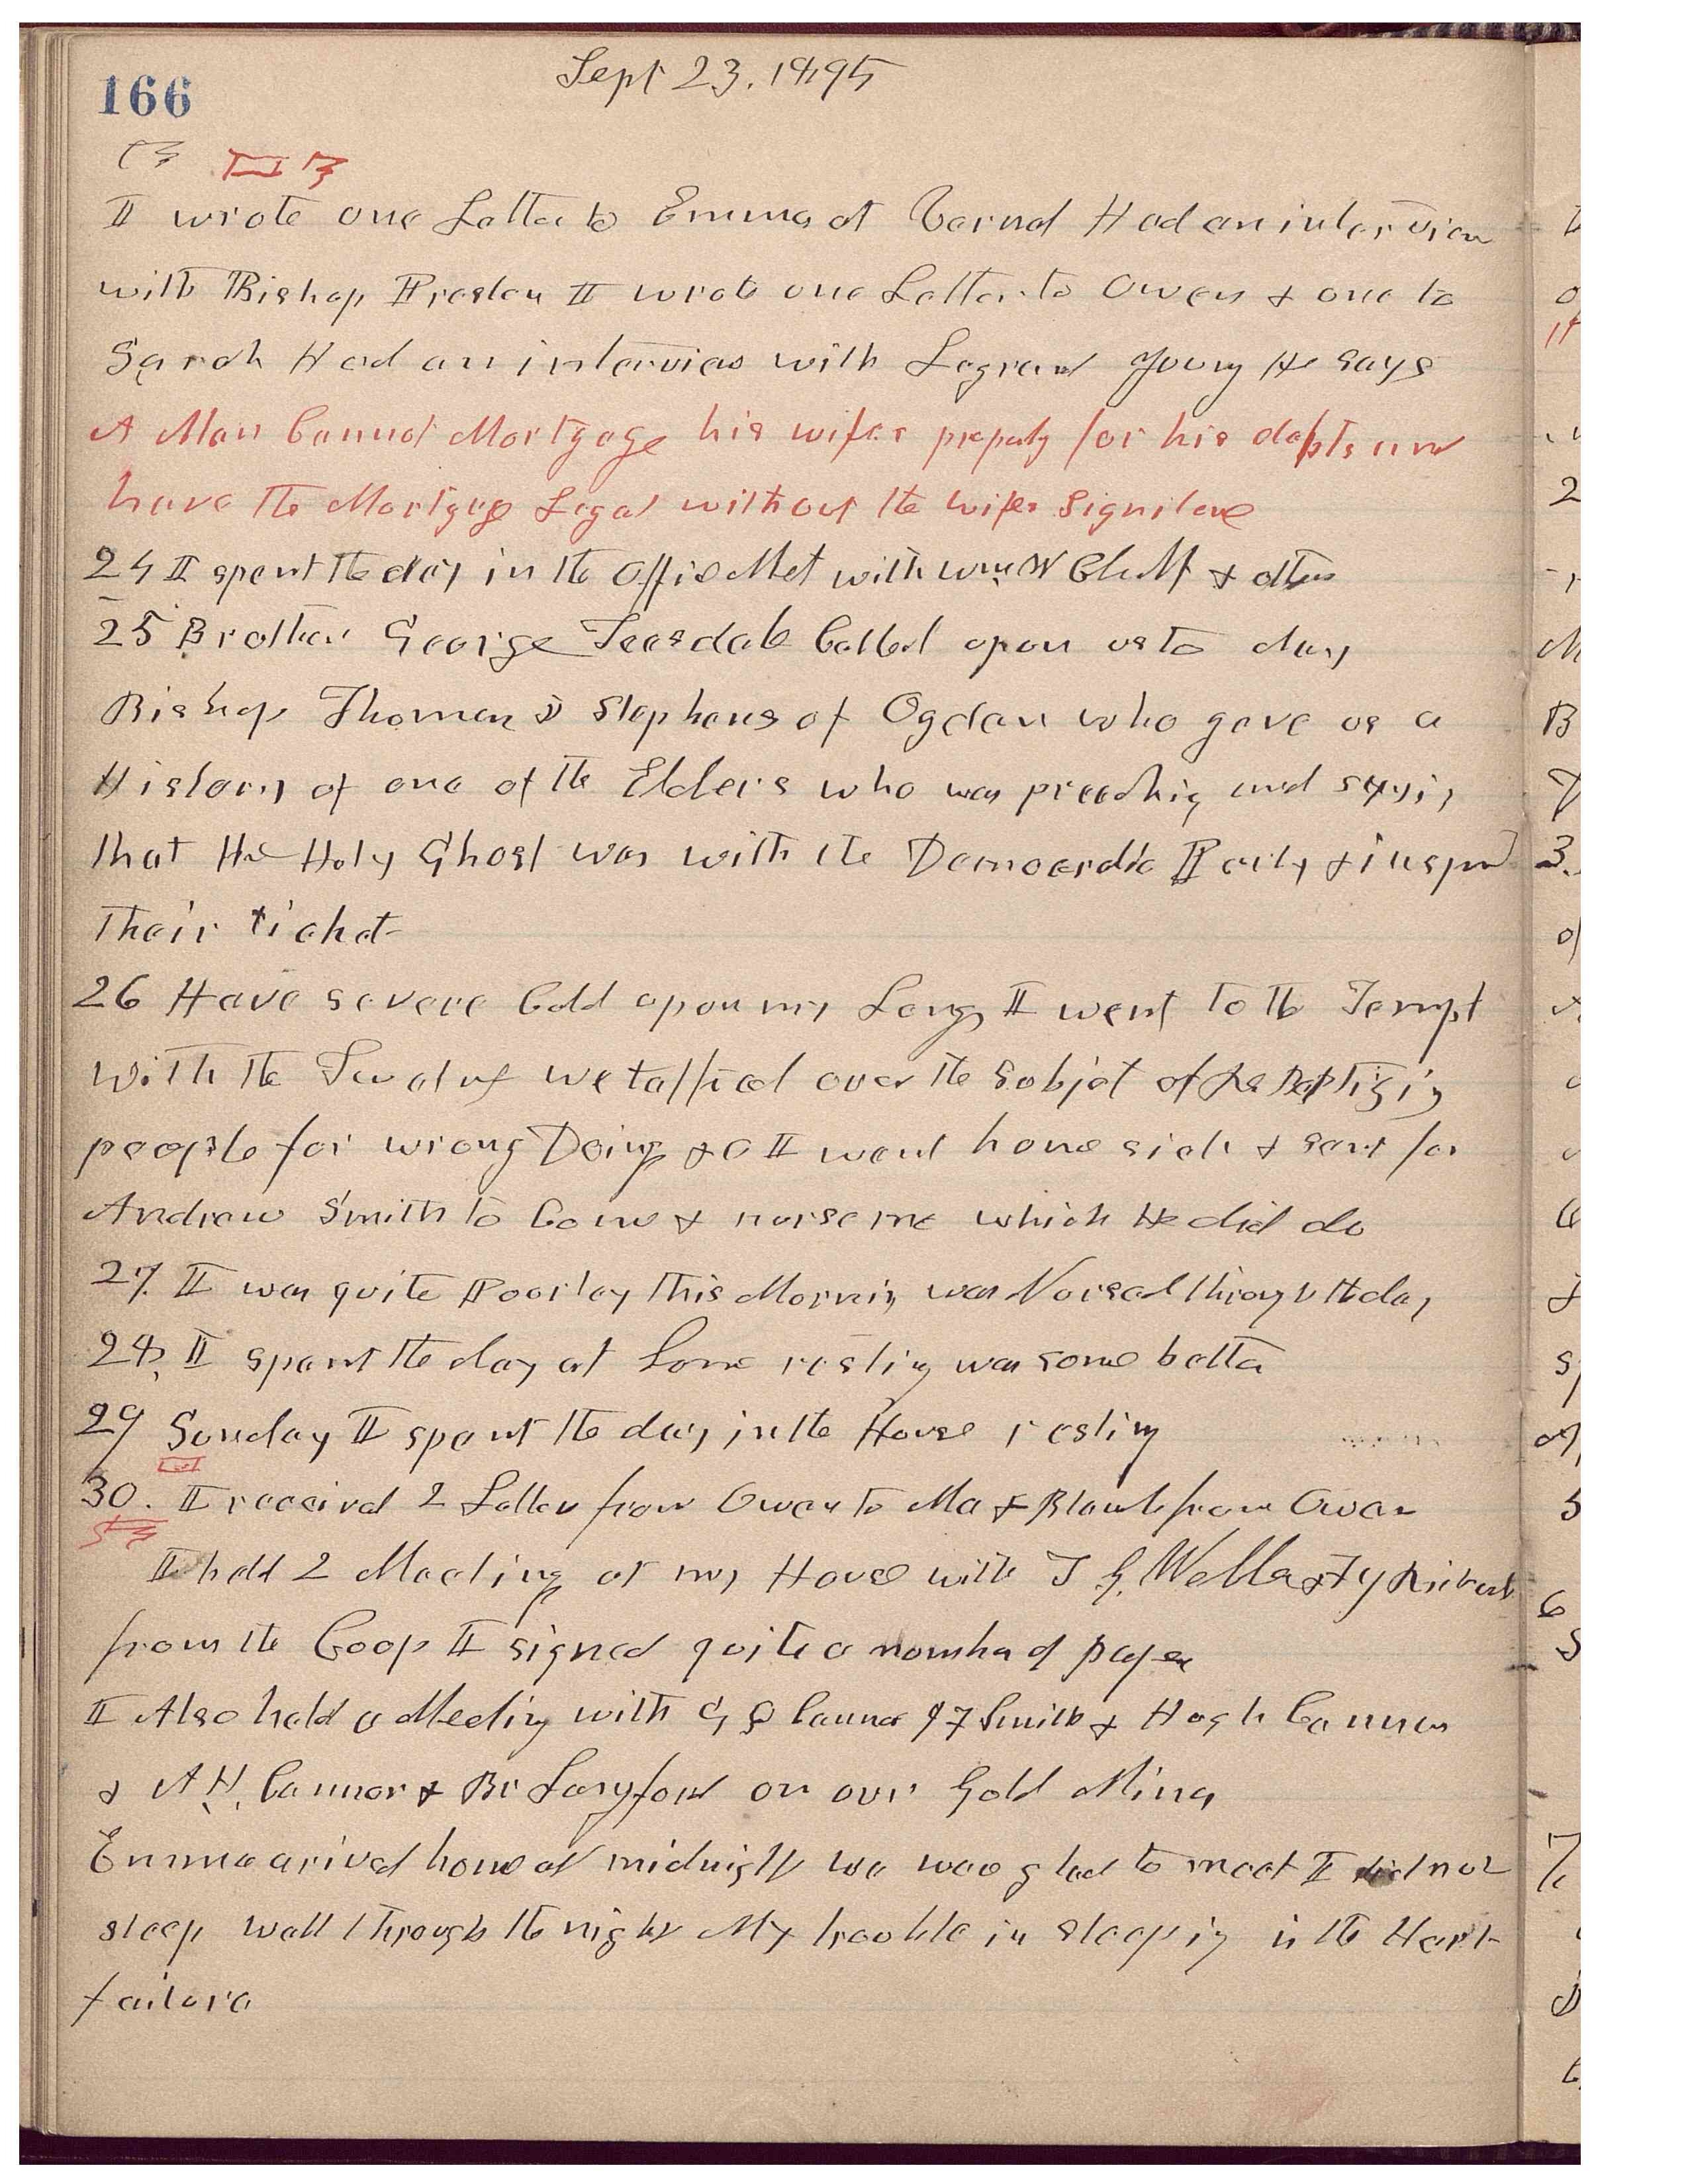 166
Sept 23. 1895
I wrote one Letter to Emma at Vernal Had an interview
with Bishop Preston I wrote one Letter to Owen & one to
Sarah Had an interview with Legrand Young He says
A Man Cannot Mortgage his wifes property for his debts and
have the Mortgage Legal without the wifes Signiture
24 I spent the day in the Office Met with Wm W Cluff & others
25 Brother George Teasdale Called upon us to day
Bishop Thomas Stephens of Ogden who gave us a
History of one of the Elders who was preaching and saying
that the Holy Ghost was with the Democratic Party & inspired
their ticket
26 Have severe Cold upon my Lungs I went to the Templ
with the we talked over the Subjet of Rebaptizing
people for wrong Doing &c I went home sick & sent for
Andrew Smith to Come & nurse me which He did do
27. I was quite Poorley this Morning was Nursed through the day
28, I spent the day at home resting was some better
29 Sunday I spent the day in the House resting
30. I received 2 Letters from Owen to Ma & Blanch from Owen
I held 2 Meeting at my House with T G Webber &
from the Coop I signed quite a number of paper
I Also held a Meeting with G Q Cannon J F Smith & Hugh Cannon
& A H. Cannon & Br Langford on our Gold Mine
Emma arived home at midnight we was glad to meet I did not
sleep well through the night My trouble in sleeping is the Hart
failure